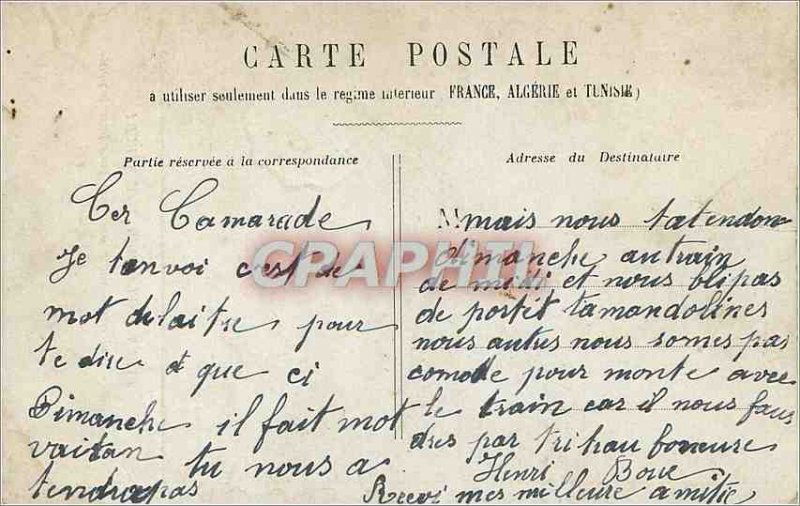 CARTE POSTALE
à utiliser seulement dans le régime intérieur (FRANCE, ALGÉRIE et TUNISIE)
Partie réservée à la correspondance
Cer Camarade
Je tanvoi c'est de
mot delaitre pour
te dire et que ci
Dimanche il fait mot
vaitan tu nous a
tendra pas
Adresse du Destinataire
M mais nous tatendon
dimanche au train
de midi et nous blipas
de portét ta mandolines
nous autres nous somes pas
comode pour monte avec
le train car il nous faus
dres par tri bonneuse
Henri Boue
Recevi mes milleure amitie
CPAPHIL